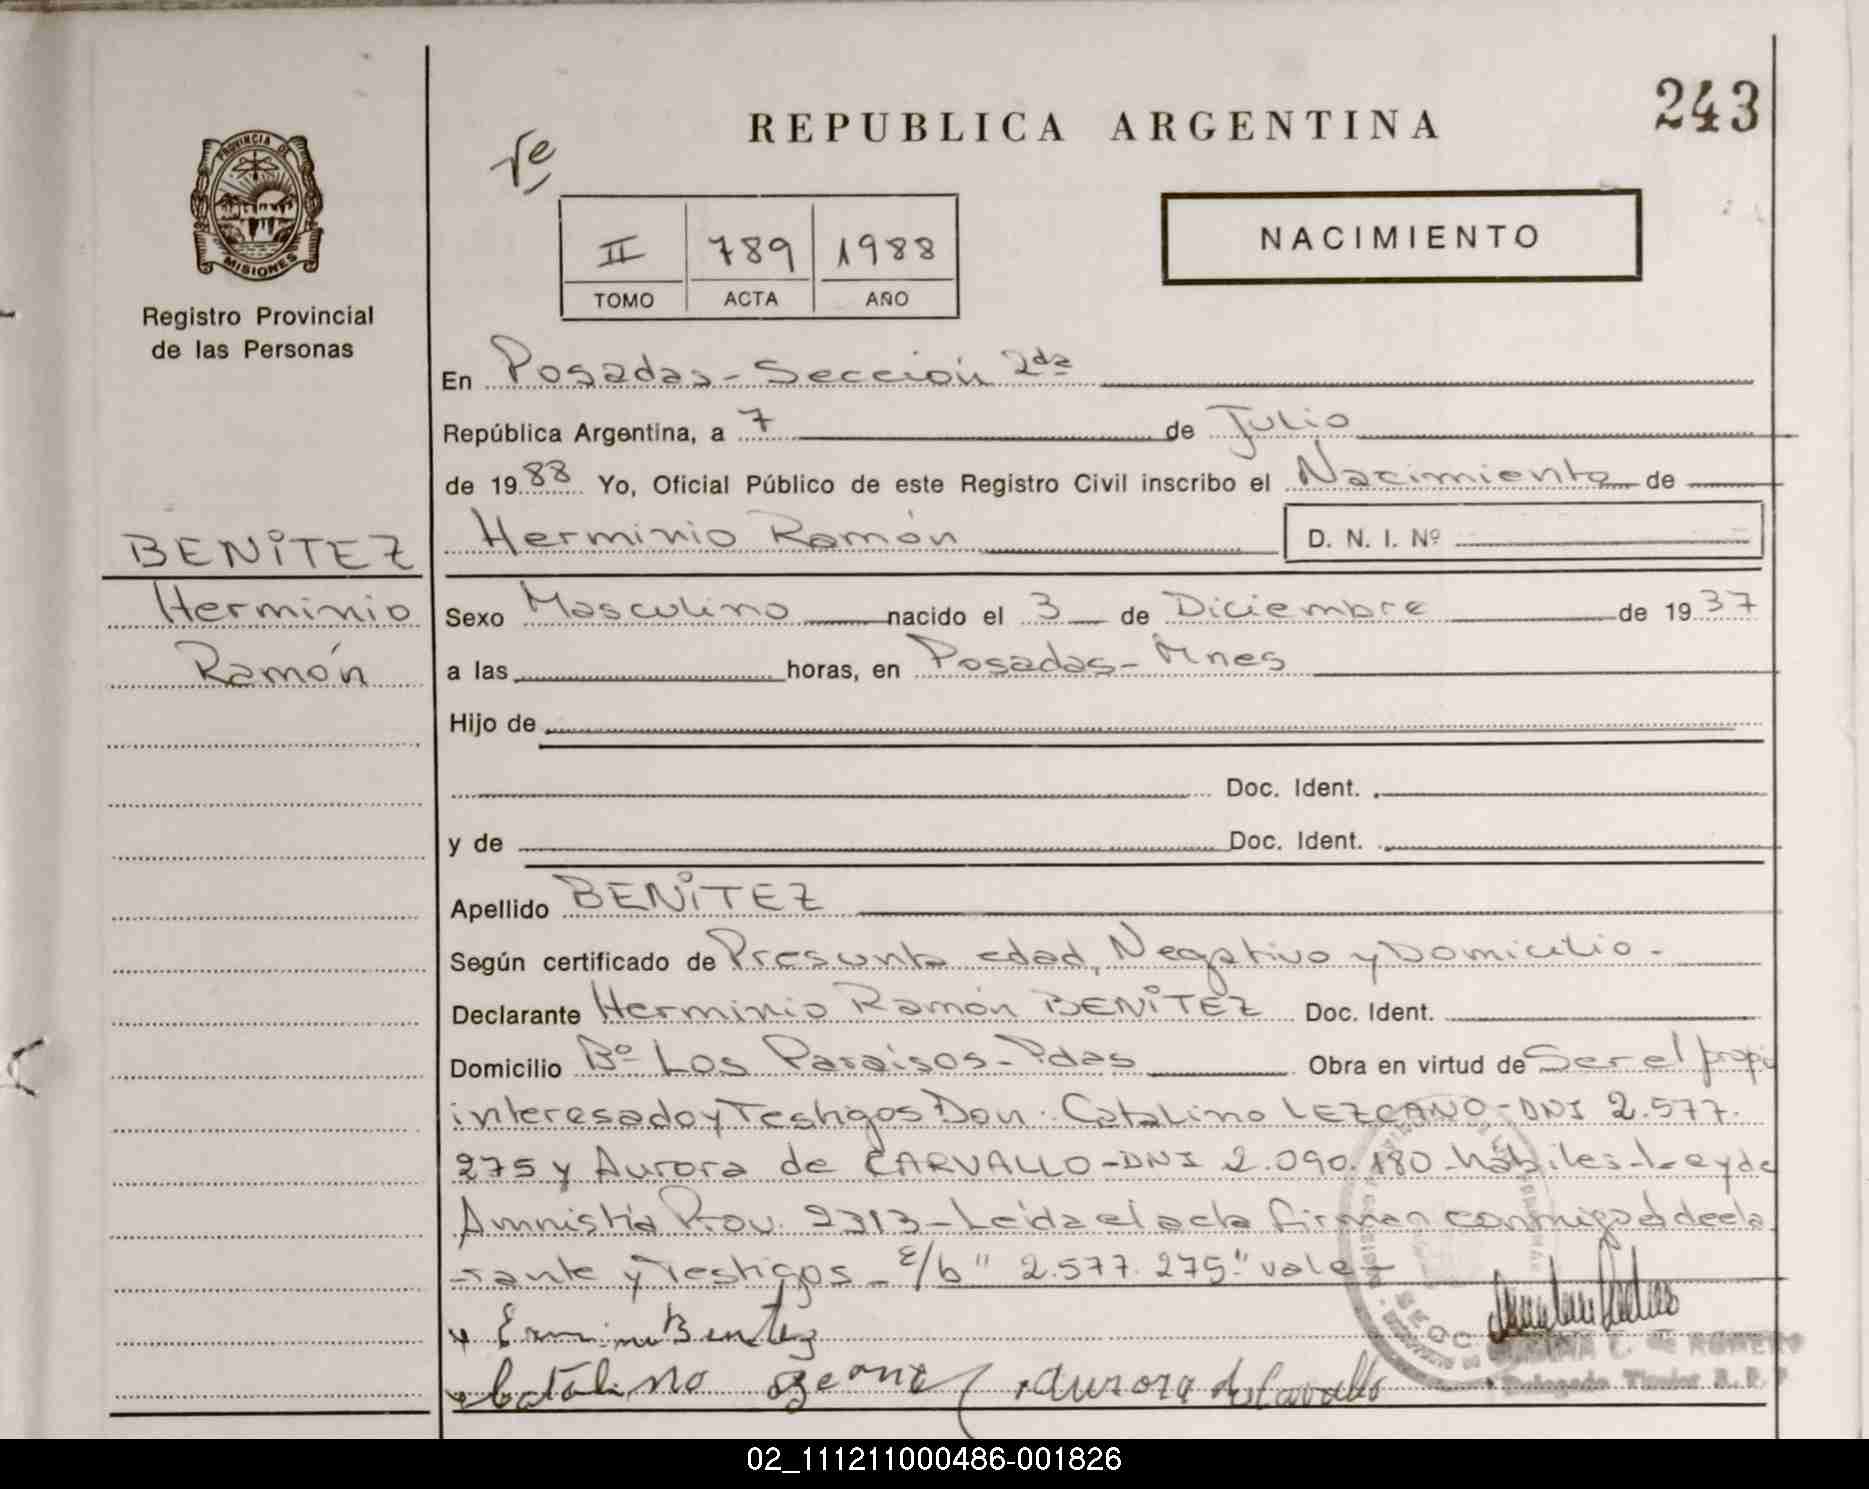 243
REPUBLICA ARGENTINA
PROVINCIA DE
MISIONES
Registro Provincial
de las Personas
NACIMIENTO
II 789 1988
TOMO ACTA AÑO
En Posadas - Sección 2da
República Argentina, a 7 de Julio
de 1988 Yo, Oficial Público de este Registro Civil inscribo el Nacimiento de
Herminio Ramón D. N. I. Nº
BENITEZ
Herminio
Ramón
Sexo Masculino nacido el 3 de Diciembre de 1937
a las horas, en Posadas - Mnes
Hijo de
Doc. Ident.
y de Doc. Ident.
Apellido BENITEZ
Según certificado de Presunta edad, Negativo y Domicilio.
Declarante Herminio Ramón BENITEZ Doc. Ident.
Domicilio Bº Los Paraisos - Pdas Obra en virtud de Ser el propi
interesado y Testigos Don: Catalino LEZCANO - DNI 2.577.
275 y Aurora de CARVALLO - DNI 2.090.180 - hábiles - Ley de
Amnistia Prov. 2313 - Leida el acta firman conmigo el decla
rante y Testigos - E/b " 2.577.275 " vale -
Benitez
Catalino Aurora de Carvallo
C. de ROMERO
Delegado Titular R. P. P
02_111211000486-001826